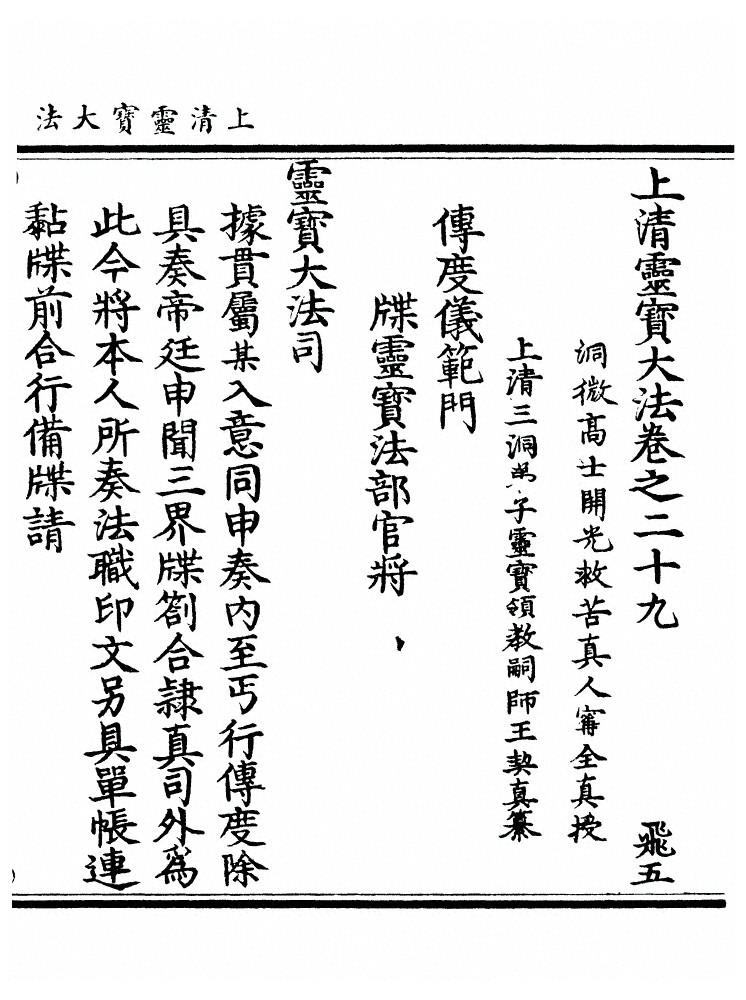 上清靈寶大法
上清靈寶大法卷之二十九 飛五
洞微高士開光救苦真人寗全真授
上清三洞弟子靈寶領教嗣師王契真纂
傳度儀範門
牒靈寶法部官將
靈寶大法司
據貫屬某入意同申奏內至丐行傳度除
具奏帝廷申聞三界牒劄合隸真司外爲
此今將本人所奏法職印文另具單帳連
黏牒前合行備牒請